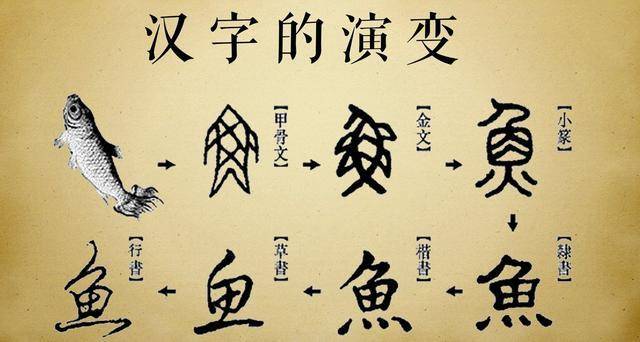 汉字的演变
魚
【甲骨文】
魚
【金文】
魚
【小篆】
魚
【隸書】
魚
【楷書】
鱼
【草書】
鱼
【行書】